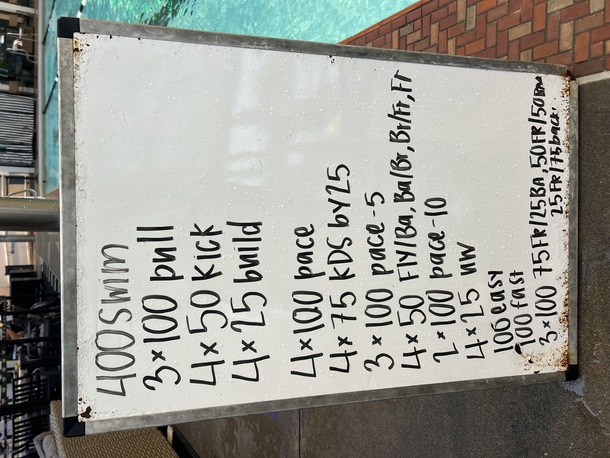 400 swim
3x100 pull
4x50 kick
4x25 build
4x100 pace
4x75 KDS by 25
3x100 pace-5
4x50 Fly/Ba, Ba/Br, Br/Fr, Fr
2x100 pace-10
4x25 UW
100 easy
100 fast
3x100 75FR/25BA, 50FR/50
25FR/75back.